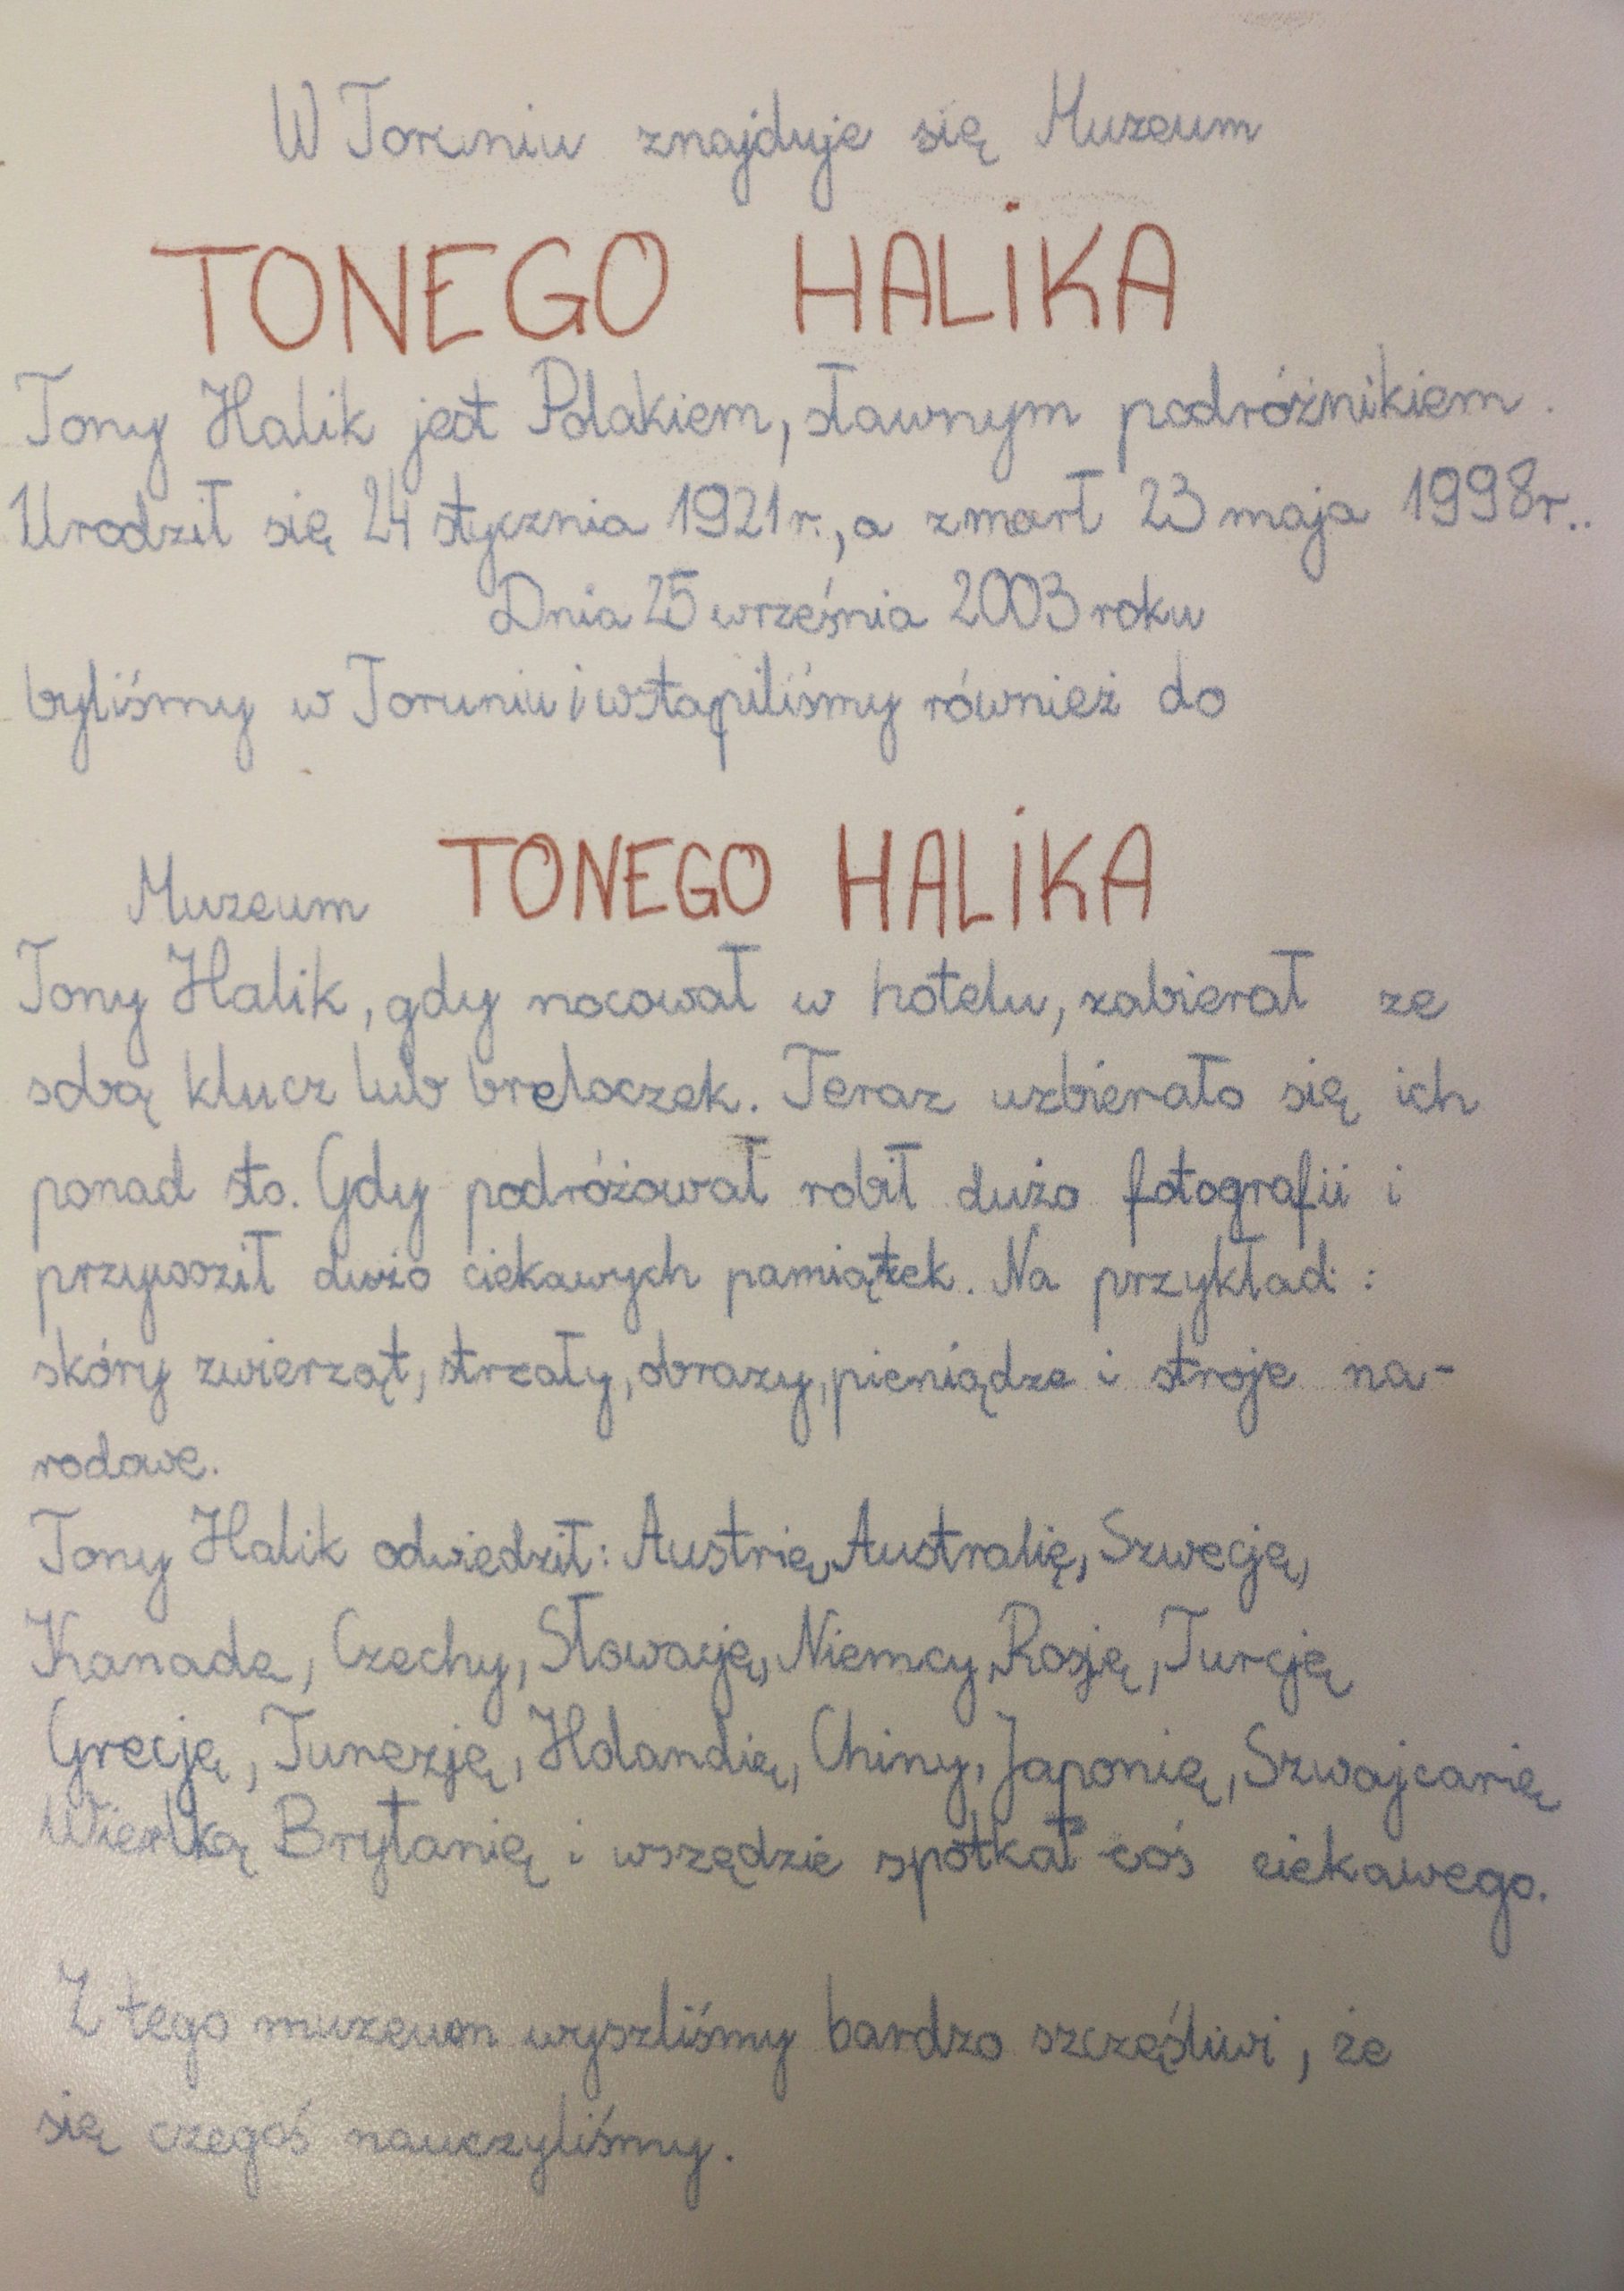 W Toruniu znajduje się Muzeum
TONEGO HALiKA
Tony Halik jest Polakiem, sławnym podróżnikiem.
Urodził się 24 stycznia 1921 r., a zmarł 23 maja 1998r..
Dnia 25 września 2003 roku
byliśmy w Toruniu i wstapiliśmy również do
Muzeum TONEGO HALiKA
Tony Halik, gdy nocował w hotelu, zabierał ze
sobą klucz lub breloczek. Teraz uzbierało się ich
ponad sto. Gdy podróżował robił dużo fotografii i
przywoził dużo ciekawych pamiątek. Na przykład :
skóry zwierząt, strzały, obrazy, pieniądze i stroje na-
rodowe.
Tony Halik odwiedził: Austrię, Australię, Szwecję,
Kanade, Czechy, Słowację, Niemcy, Rosję, Turcję
Grecję, Tunezję, Holandię, Chiny, Japonię, Szwajcarię
Wielką Brytanię i wszędzie spotkał coś ciekawego.
Z tego muzeum wyszliśmy bardzo szczęśliwi, że
się czegoś nauczyliśmy.